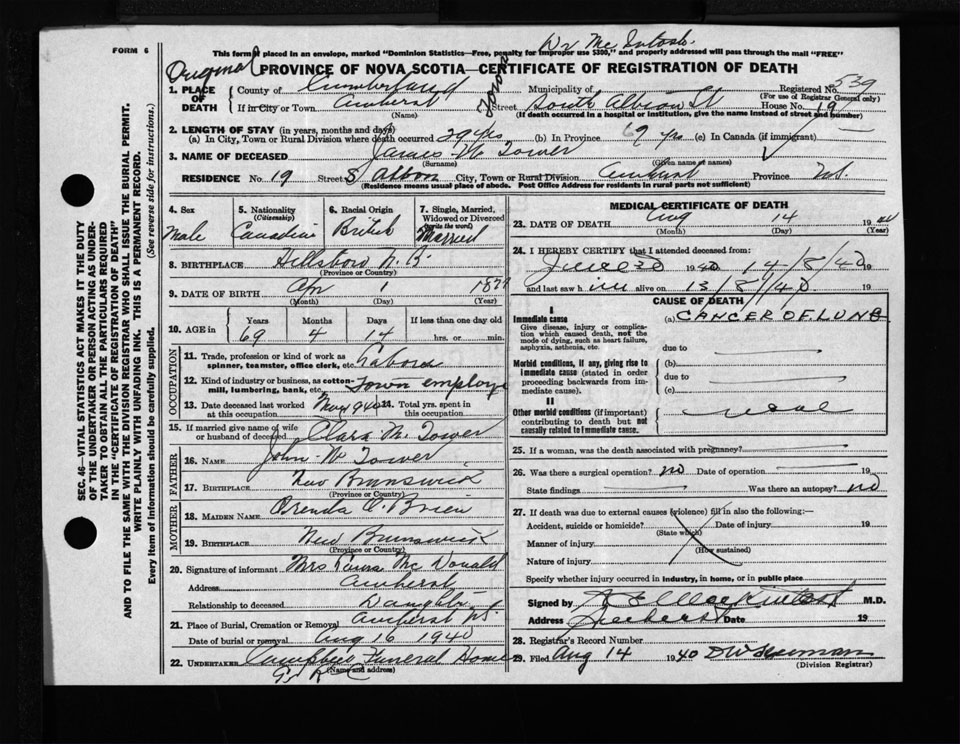 FORM 6
This form, if placed in an envelope, marked "Dominion Statistics—Free, penalty for improper use $300," and properly addressed will pass through the mail "FREE"
Dr Mc Intosh
Original
PROVINCE OF NOVA SCOTIA—CERTIFICATE OF REGISTRATION OF DEATH
1. PLACE OF DEATH
County of Cumberland
Municipality of
Registered No. 539
(For use of Registrar General only)
If in City or Town Amherst
(Name)
Town
Street South Albion St House No. 19
(If death occurred in a hospital or institution, give the name instead of street and number)
2. LENGTH OF STAY (in years, months and days)
(a) In City, Town or Rural Division where death occurred 29 yrs (b) In Province 29 yrs (c) In Canada (if immigrant)
3. NAME OF DECEASED James W Tower
(Surname) (Given name or names)
RESIDENCE No. 19 Street S Albion City, Town or Rural Division Amherst Province N.S.
(Residence means usual place of abode. Post Office Address for residents in rural parts not sufficient)
4. Sex Male
5. Nationality (Citizenship) Canadian
6. Racial Origin British
7. Single, Married, Widowed or Divorced (write the word) Married
8. BIRTHPLACE Hillsboro N.B.
(Province or Country)
9. DATE OF BIRTH Apr 1 1871
(Month) (Day) (Year)
10. AGE in Years 69 Months 4 Days 14 If less than one day old hrs. or min.
OCCUPATION
11. Trade, profession or kind of work as spinner, teamster, office clerk, etc. Laborer
12. Kind of industry or business, as cotton-mill, lumbering, bank, etc. Town employe
13. Date deceased last worked at this occupation May 1940 14. Total yrs. spent in this occupation
15. If married give name of wife or husband of deceased Clara M. Tower
FATHER
16. Name John W Tower
17. Birthplace New Brunswick
(Province or Country)
MOTHER
18. Maiden Name Orenda O'Brien
19. Birthplace New Brunswick
(Province or Country)
20. Signature of informant Mrs Mc Donald
Address Amherst
Relationship to deceased Daughter
21. Place of Burial, Cremation or Removal Amherst N.S.
Date of burial or removal Aug 16 1940
22. UNDERTAKER Campbell Funeral Home
(Name and address)
MEDICAL CERTIFICATE OF DEATH
23. DATE OF DEATH Aug 14 1940
(Month) (Day) (Year)
24. I HEREBY CERTIFY that I attended deceased from:
1940 14/8/40 19
and last saw him alive on 13/8/40. 19
CAUSE OF DEATH
I
Immediate cause
Give disease, injury or complication which caused death, not the mode of dying, such as heart failure, asphyxia, asthenia, etc.
(a) CANCER OF LUNG
due to
Morbid conditions, if any, giving rise to Immediate cause (stated in order proceeding backwards from immediate cause).
(b)
due to
(c)
II
Other morbid conditions (if important) contributing to death but not causally related to Immediate cause.
25. If a woman, was the death associated with pregnancy?
26. Was there a surgical operation? no Date of operation 19
State findings Was there an autopsy? no
27. If death was due to external causes (violence) fill in also the following:—
Accident, suicide or homicide? Date of injury 19
(State which)
Manner of injury
(How sustained)
Nature of injury
Specify whether injury occurred in industry, in home, or in public place
Signed by A E MacKintosh M.D.
Address Amherst Date 19
28. Registrar's Record Number
29. Filed Aug 14 1940
(Division Registrar)
SEC. 46—VITAL STATISTICS ACT MAKES IT THE DUTY
OF THE UNDERTAKER OR PERSON ACTING AS UNDER-
TAKER TO OBTAIN ALL THE PARTICULARS REQUIRED
IN THE "CERTIFICATE OF REGISTRATION OF DEATH"
AND TO FILE THE SAME WITH THE DIVISION REGISTRAR WHO SHALL ISSUE THE BURIAL PERMIT.
WRITE PLAINLY WITH UNFADING INK. THIS IS A PERMANENT RECORD.
Every item of information should be carefully supplied. (See reverse side for instructions.)